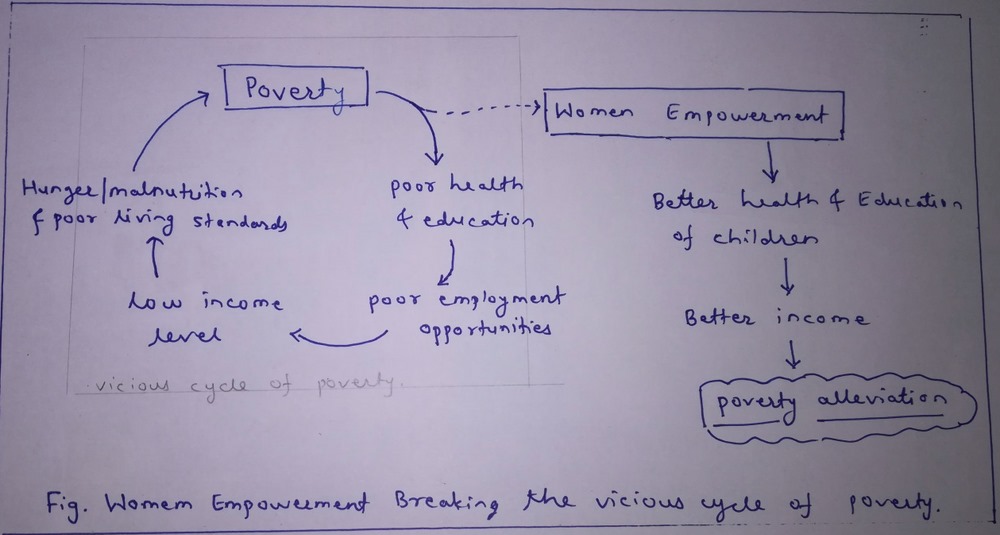 Poverty
Women Empowerment
Hunger/malnutrition
& poor living standards
poor health
& education
Better health & Education
of children
low income
level
poor employment
opportunities
Better income
vicious cycle of poverty.
poverty alleviation
Fig. Womem Empowerment Breaking the vicious cycle of poverty.